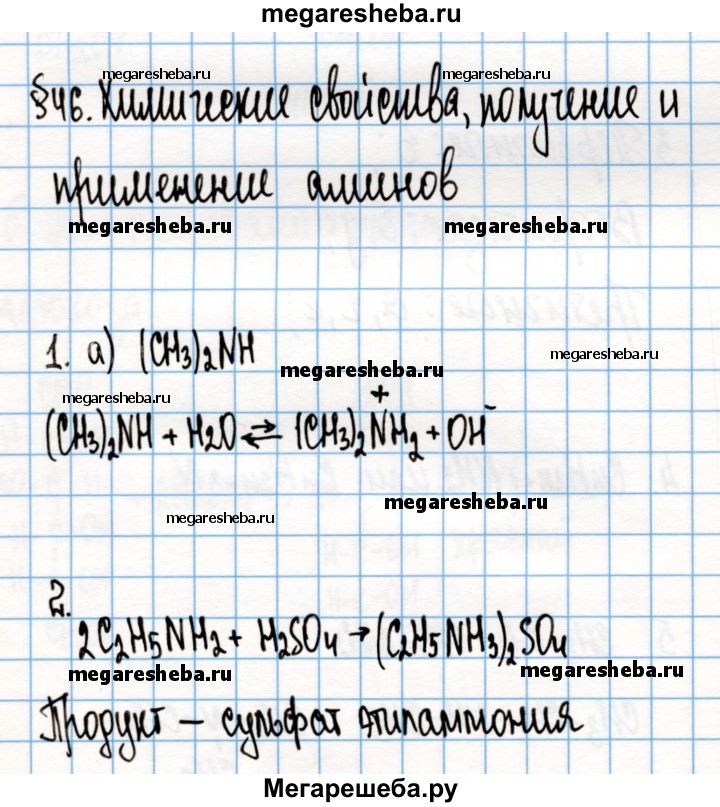 megaresheba.ru
megaresheba.ru megaresheba.ru
§46. Химические свойства, получение и
применение аминов
megaresheba.ru megaresheba.ru
1. а) (CH3)2NH
megaresheba.ru
megaresheba.ru
megaresheba.ru
(CH3)2NH + H2O ⇄ (CH3)2N⁺H2 + OH⁻
megaresheba.ru
megaresheba.ru
2.
2C2H5NH2 + H2SO4 → (C2H5NH3)2SO4
megaresheba.ru megaresheba.ru
Продукт – сульфат этиламмония
Мегарешеба.ру